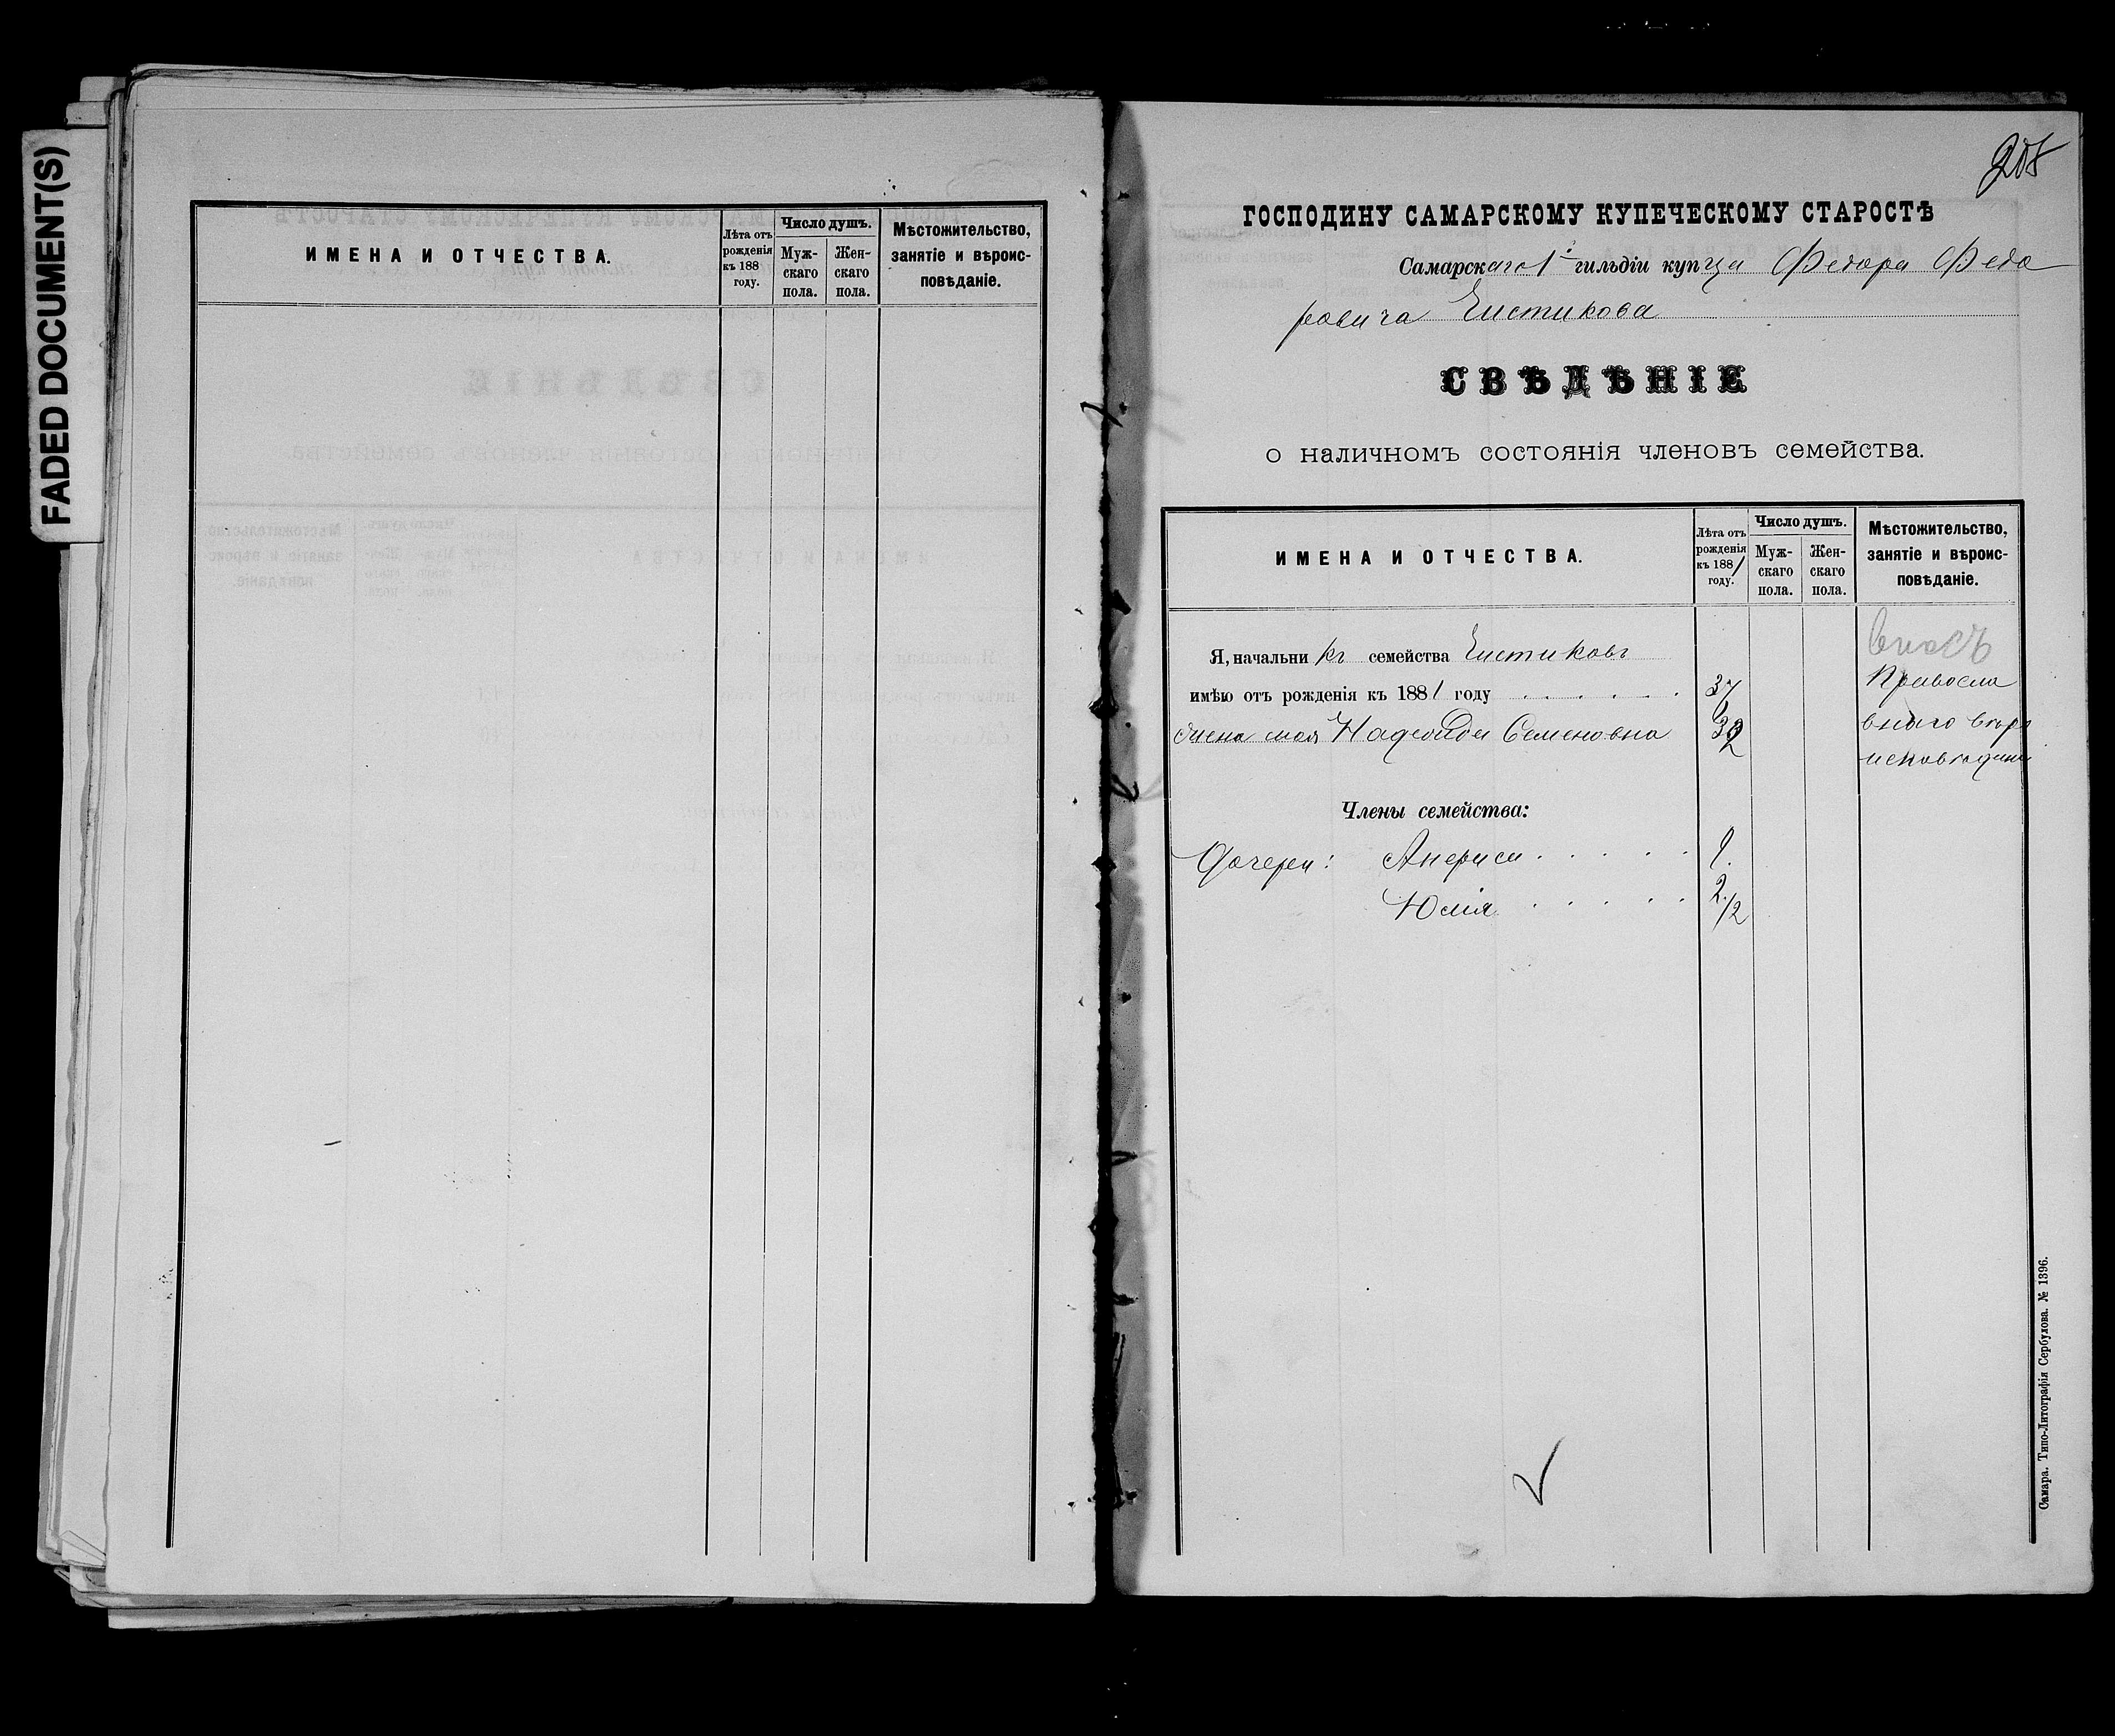 FADED DOCUMENT(S)
ИМЕНА И ОТЧЕСТВА.
Лѣта отъ рожденія къ 188 году.
Число душъ.
Мужскаго пола.
Женскаго пола.
Мѣстожительство, занятіе и вѣроисповѣданіе.
208
ГОСПОДИНУ САМАРСКОМУ КУПЕЧЕСКОМУ СТАРОСТѢ
Самарскаго 1й гильдіи купца Федора Федо
ровича
СВѢДѢНІЕ
о наличномъ состоянія членовъ семейства.
ИМЕНА И ОТЧЕСТВА.
Лѣта отъ
рожденія
къ 1881
году.
Число душъ.
Муж-
скаго
пола.
Жен-
скаго
пола.
Мѣстожительство,
занятіе и вѣроис-
повѣданіе.
Я, начальникъ семейства
имѣю отъ рожденія къ 1881 году
37
Правосла
жена моя Надежда Семеновна
внаго вѣро
исповѣдани
Члены семейства:
Дочери:
Юлія
2 1/2
Самара. Типо-Литографія Сербулова. № 1396.